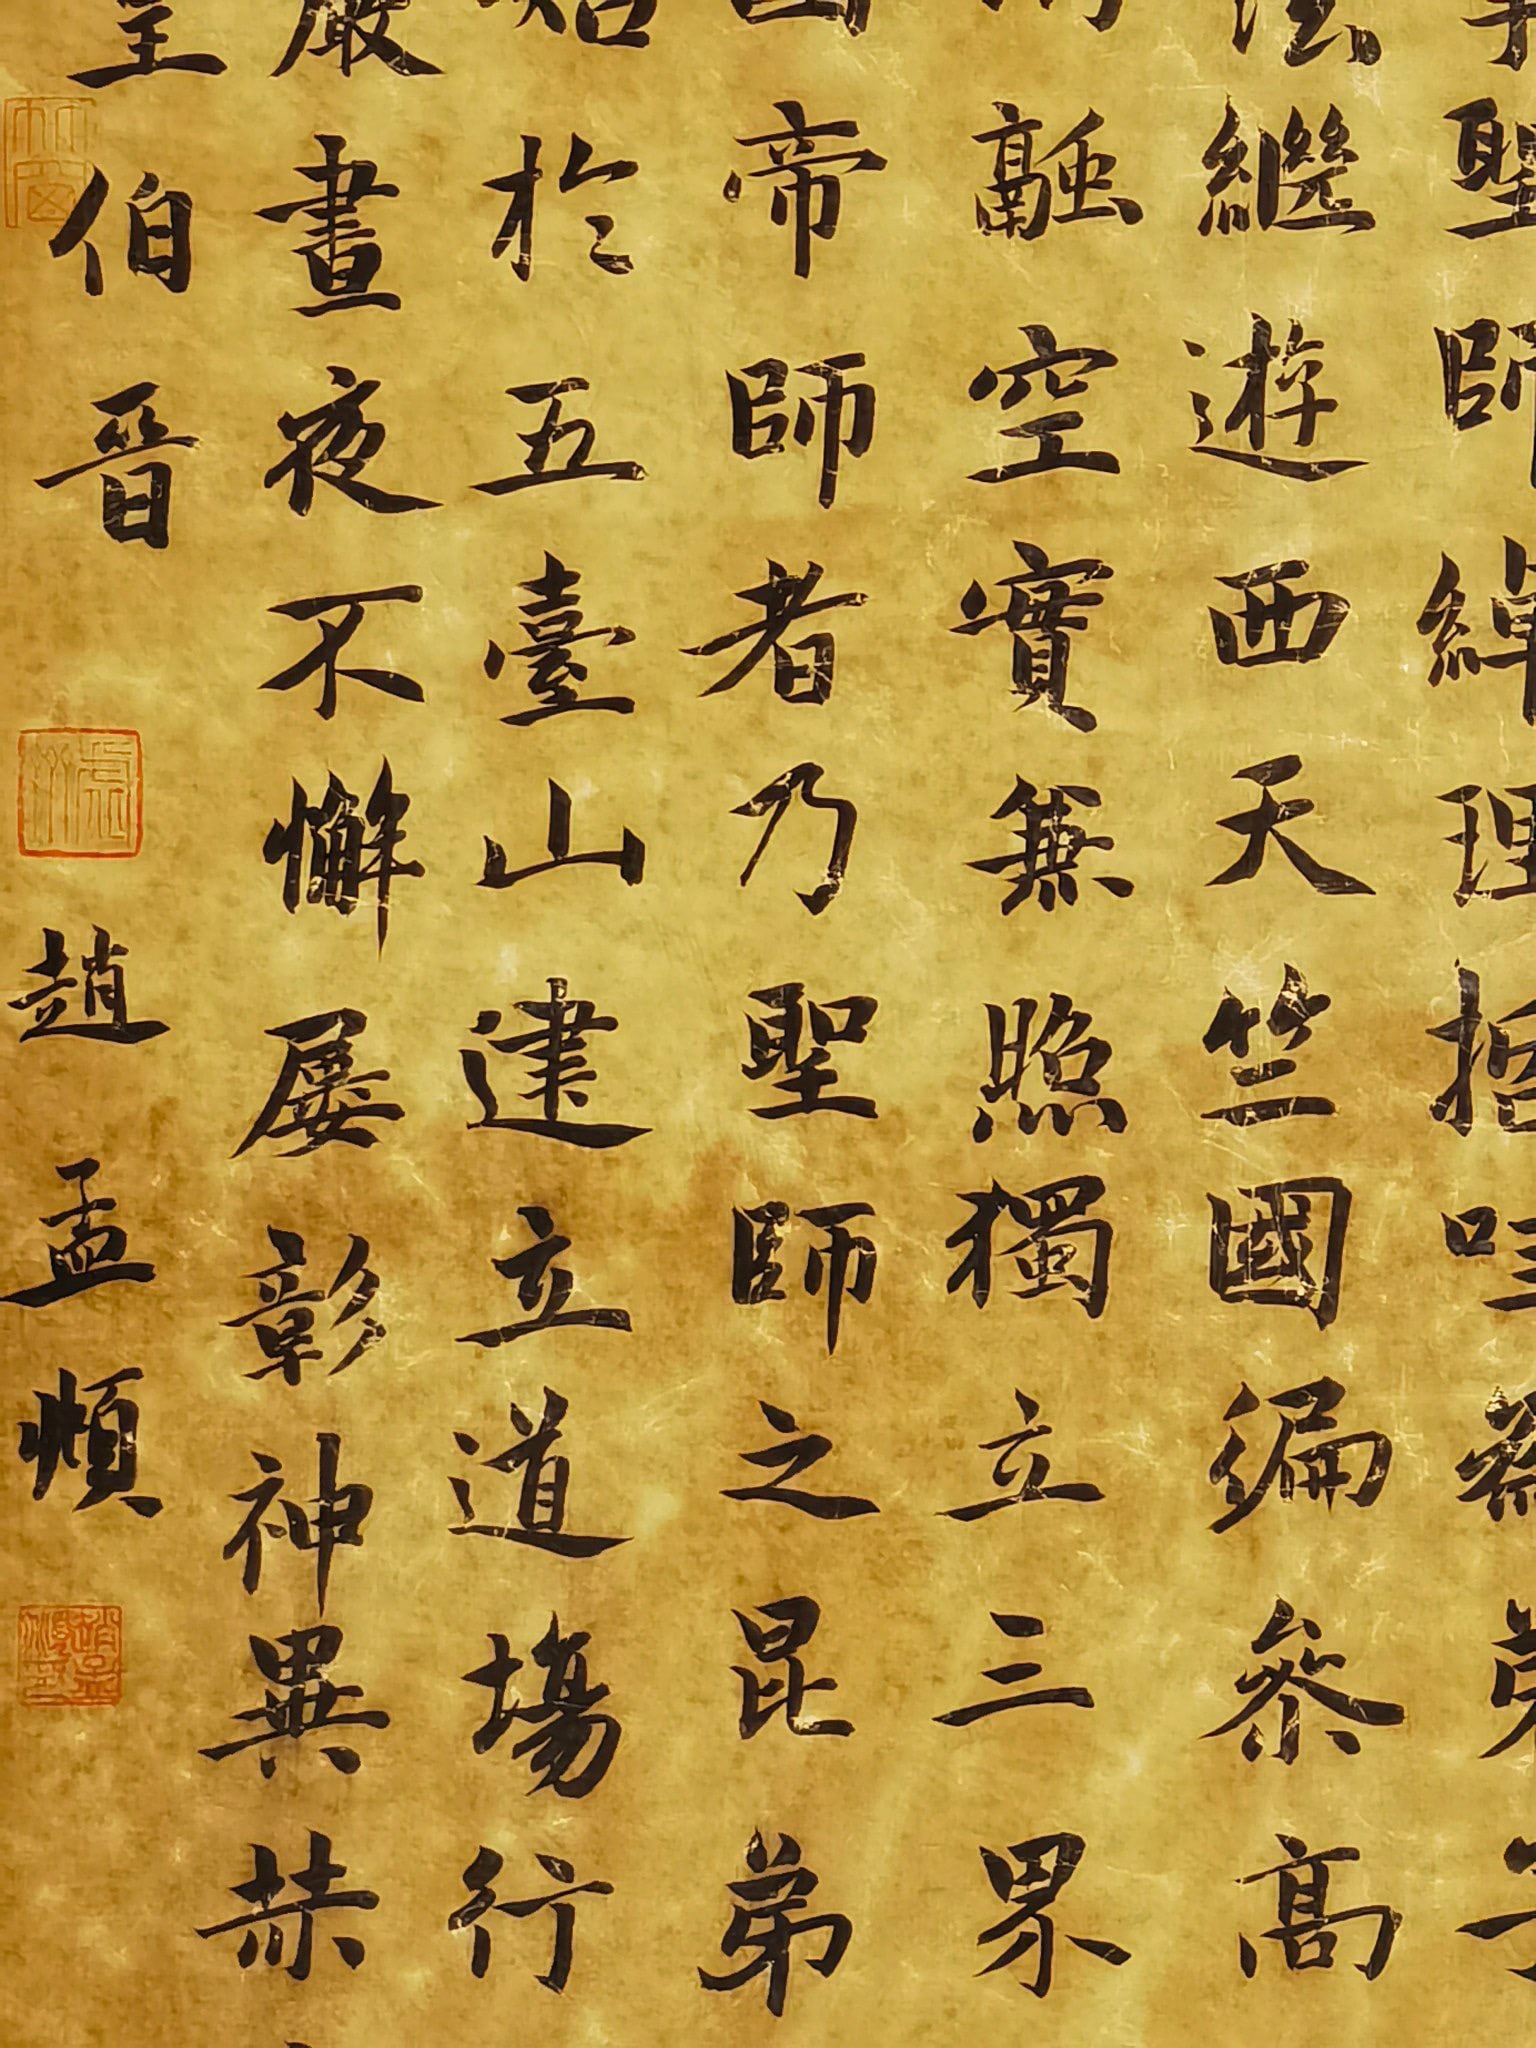 聖師綽理
法繼遊西天竺國徧參高
融空實無照獨立三界
帝師者乃聖師之昆弟
於五臺山建立道場行
嚴晝夜不懈屢彰神異赫
伯晉
趙孟頫